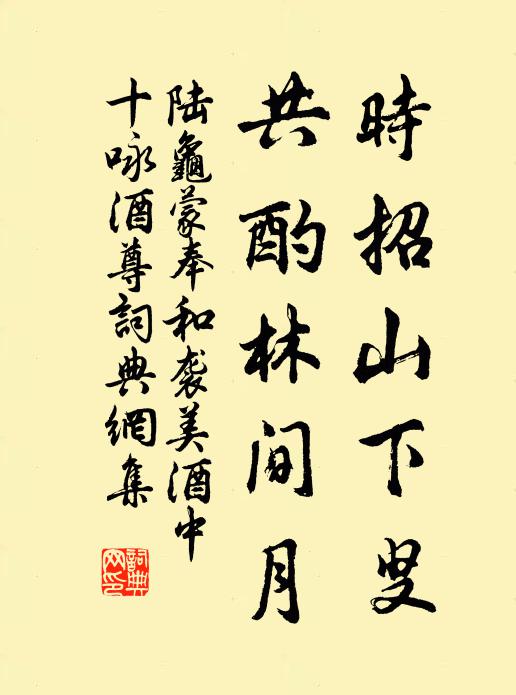 時招山下叟
共酌林間月
陆龜蒙奉和袭美酒中
十咏酒尊詞典網集
詞典
网印